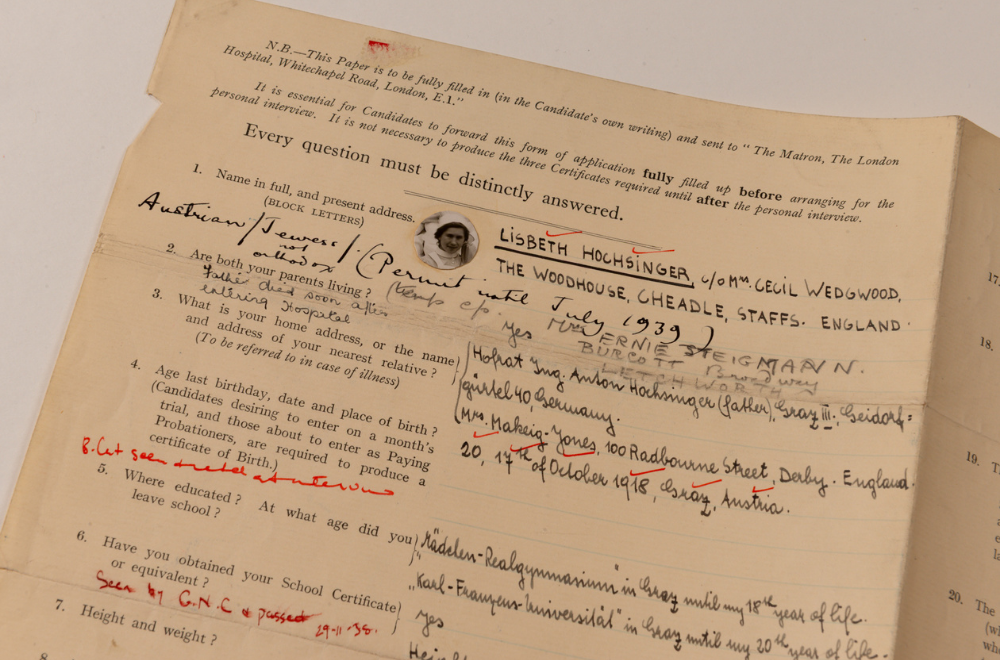 N.B.—This Paper is to be fully filled in (in the Candidate's own writing) and sent to "The Matron, The London
Hospital, Whitechapel Road, London, E.1."
It is essential for Candidates to forward this form of application fully filled up before arranging for the
personal interview. It is not necessary to produce the three Certificates required until after the personal interview.
Every question must be distinctly answered.
1. Name in full, and present address.
(BLOCK LETTERS)
LISBETH HOCHSINGER, c/o Mrs. CECIL WEDGWOOD,
THE WOODHOUSE, CHEADLE, STAFFS. ENGLAND.
Austrian/Jewess/. (Permit until July 1939)
not
orthodox
2. Are both your parents living?
Yes
Father died soon after
entering Hospital
Mrs ERNIE STEIGMANN.
BURCOTT Broadway
LETCHWORTH
3. What is your home address, or the name
and address of your nearest relative?
(To be referred to in case of illness)
Hofrat Ing. Anton Hochsinger (father), Graz III., Geidorf=
gürtel 40, Germany.
Mrs. Makeig-Jones, 100 Radbourne Street, Derby. England.
4. Age last birthday, date and place of birth?
(Candidates desiring to enter on a month's
trial, and those about to enter as Paying
Probationers, are required to produce a
certificate of Birth.)
20, 17th of October 1918, Graz, Austria.
B. Cert seen
5. Where educated? At what age did you
leave school?
"Mädchen-Realgymnasium" in Graz until my 18th year of life.
"Karl-Franzens-Universität" in Graz until my 20th year of life.
6. Have you obtained your School Certificate
or equivalent?
Yes
Seen by G.N.C & passed
29-11-38.
7. Height and weight?
17.
18.
19.
20. The
(wi